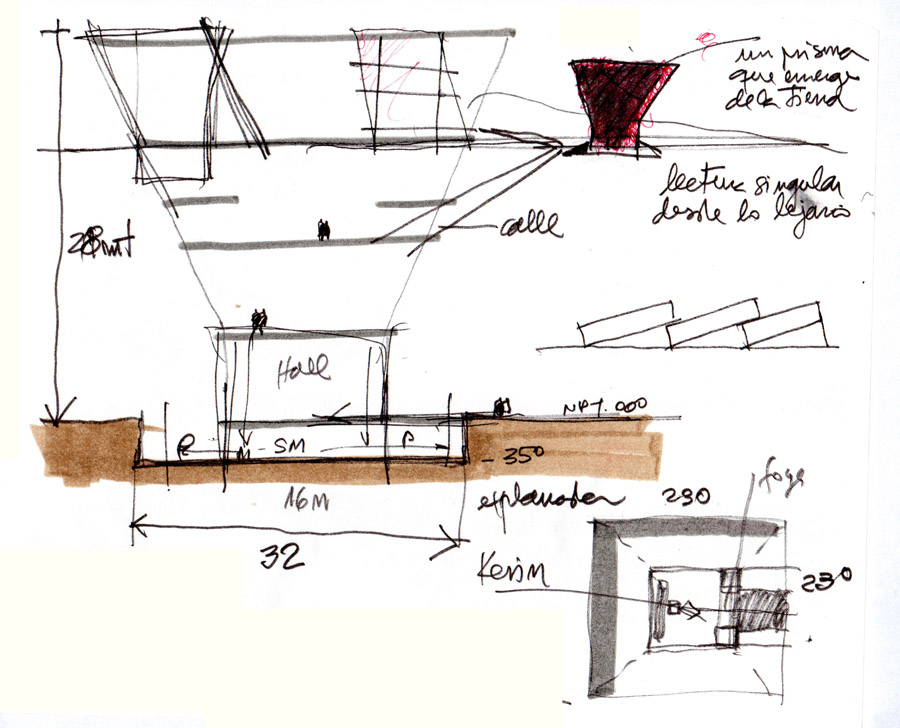 un prisma
que emerge
de la tierra
lectura singular
desde lo lejano
calle
28mt
Hall
NPT. 000
P
SM
P
- 350
16M
explanada
32
230
foga
230